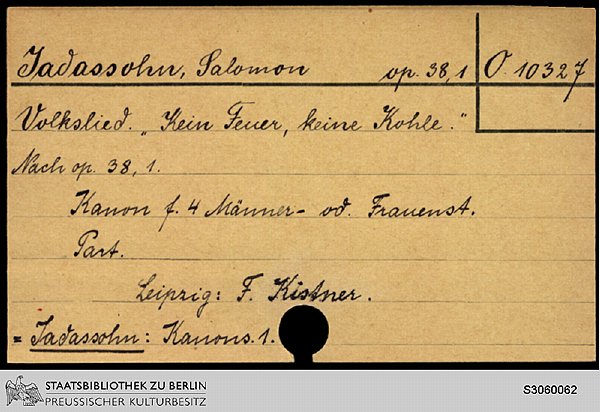 Jadassohn, Salomon op. 38,1 O. 10327
Volkslied. „Kein Feuer, keine Kohle."
Nach op. 38, 1.
Kanon f. 4 Männer- od. Frauenst.
Part.
Leipzig: F. Kistner.
= Jadassohn: Kanons. 1.
STAATSBIBLIOTHEK ZU BERLIN
PREUSSISCHER KULTURBESITZ
S3060062